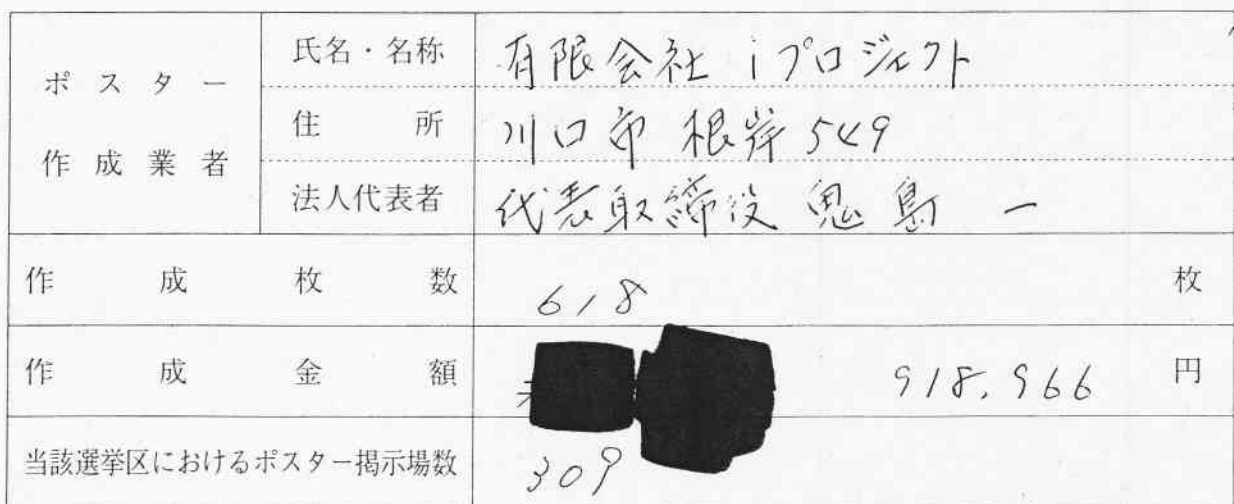 ポスター
作成業者
氏名・名称 有限会社 iプロジェクト
住所 川口市 根岸 549
法人代表者 代表取締役 鬼島 一
作成枚数 618 枚
作成金額 918,966 円
当該選挙区におけるポスター掲示場数 309